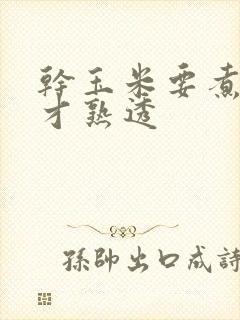 幹玉米要煮
才熟透
孫帥出口成詩